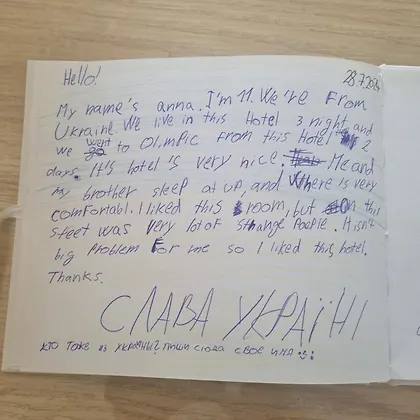 Hello!
28.7.2024
My name's anna. I'm 11. We're From
Ukraine We live in this Hotel 3 night, and
we went to Olimpic From this Hotel 2
days. It's hotel is very nice. Me and
my brother sleep at up, and Where is very
comfortabl. I liked this room, but on this
steet was very lot of stnange People. It isn't
big Problem For me so I liked this hotel.
Thanks.
СЛАВА УКРАЇНІ
кто также из УКРАИНЫ? пиши сюда своё имя